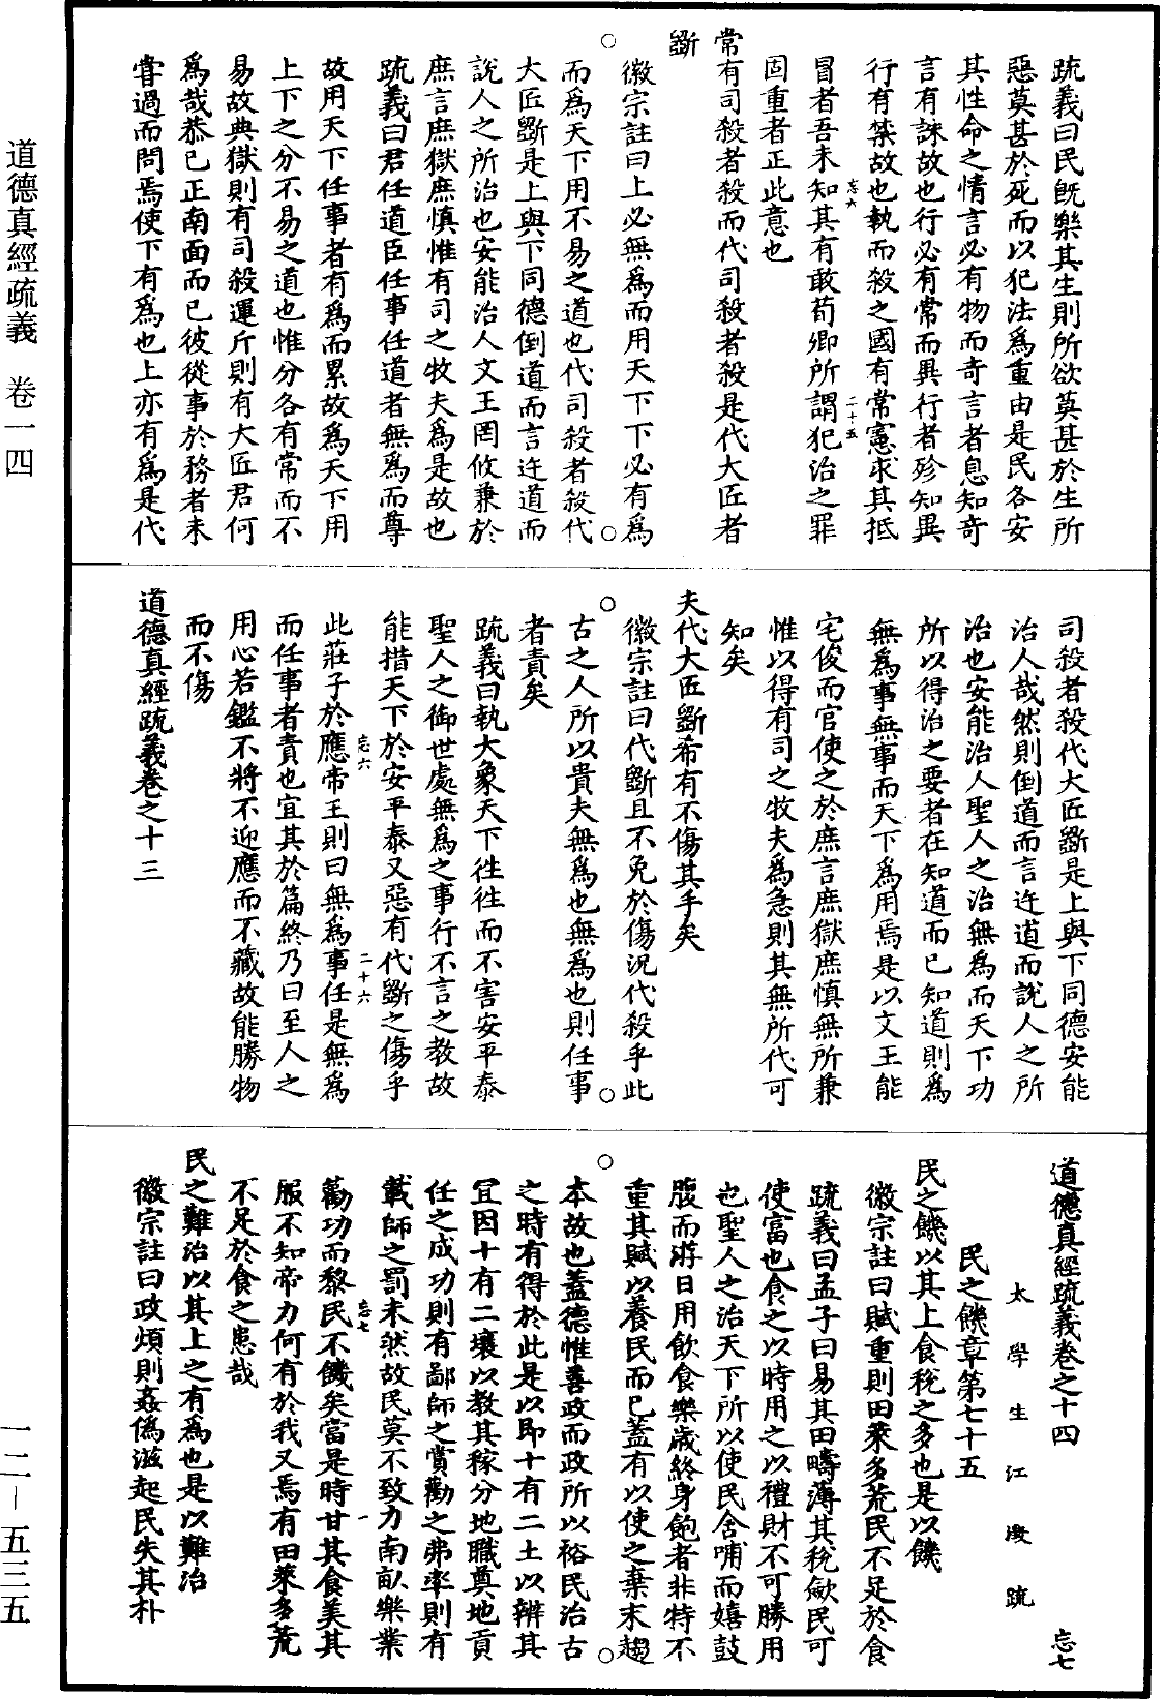 道德真經疏義　卷一四
一二－五三五
疏義曰民旣樂其生則所欲莫甚於生所
惡莫甚於死而以犯法爲重由是民各安
其性命之情言必有物而奇言者息知奇
言有誅故也行必有常而異行者殄知異
行有禁故也執而殺之國有常憲求其抵
忘六　二十五
冒者吾未知其有敢荀卿所謂犯治之罪
固重者正此意也
常有司殺者殺而代司殺者殺是代大匠者
斲
徽宗註曰上必無爲而用天下下必有爲
而爲天下用不易之道也代司殺者殺代
大匠斲是上與下同德倒道而言迕道而
說人之所治也安能治人文王罔攸兼於
庶言庶獄庶慎惟有司之牧夫爲是故也
疏義曰君任道臣任事任道者無爲而尊
故用天下任事者有爲而累故爲天下用
上下之分不易之道也惟分各有常而不
易故典獄則有司殺運斤則有大匠君何
爲哉恭己正南面而已彼從事於務者未
甞過而問焉使下有爲也上亦有爲是代
司殺者殺代大匠斲是上與下同德安能
治人哉然則倒道而言迕道而說人之所
治也安能治人聖人之治無爲而天下功
所以得治之要者在知道而已知道則爲
無爲事無事而天下爲用焉是以文王能
宅俊而官使之於庶言庶獄庶慎無所兼
惟以得有司之牧夫爲急則其無所代可
知矣
夫代大匠斲希有不傷其手矣
徽宗註曰代斲且不免於傷況代殺乎此
古之人所以貴夫無爲也無爲也則任事
者責矣
疏義曰執大象天下徃徃而不害安平泰
聖人之御世處無爲之事行不言之教故
能措天下於安平泰又惡有代斲之傷乎
忘六　二十六
此莊子於應帝王則曰無爲事任是無爲
而任事者責也宜其於篇終乃曰至人之
用心若鑑不將不迎應而不藏故能勝物
而不傷
道德真經疏義卷之十三
道德真經疏義卷之十四　忘七
太學生江澂疏
民之饑章第七十五
民之饑以其上食稅之多也是以饑
徽宗註曰賦重則田萊多荒民不足於食
疏義曰孟子曰易其田疇薄其稅歛民可
使富也食之以時用之以禮財不可勝用
也聖人之治天下所以使民含哺而嬉鼓
腹而游日用飲食樂歲終身飽者非特不
重其賦以養民而已蓋有以使之棄末趨
本故也蓋德惟善政而政所以裕民治古
之時有得於此是以即十有二土以辨其
冝因十有二壤以教其稼分地職奠地貢
任之成功則有鄙師之賞勸之弗率則有
載師之罰未然故民莫不致力南畝樂業
忘七　一
勸功而黎民不饑矣當是時甘其食美其
服不知帝力何有於我又焉有田萊多荒
不足於食之患哉
民之難治以其上之有爲也是以難治
徽宗註曰政煩則姦僞滋起民失其朴